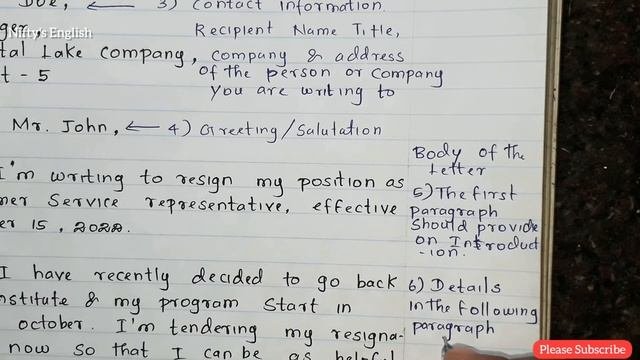 Doe, ← 3) Contact Information.
Nifty's English
Recipient Name Title,
Lake Company, Company & address
t - 5 of the person or Company
you are writing to
Mr. John, ← 4) Greeting/Salutation
Body of the
Letter
I'm writing to resign my position as
5) The first
Service representative, effective paragraph
15, 2022. Should provide
on Introduct
-ion.
I have recently decided to go back 6) Details
& my program Start in In the following
october. I'm tendering my resigna- paragraph
now so that I can be as helpful
Please Subscribe